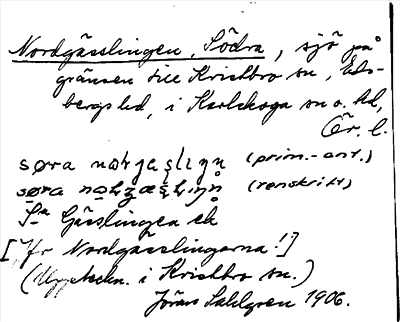 Nordgässlingen, Södra, sjö på
gränsen till Kristbro sn, Eds-
bergs hd, i Karlskoga sn o. hd,
Ör. l.
søra (prim.-ant.)
søra (renskrift)
Sa Gässlingen ek
[Jfr Nordgässlingarna!]
(Uppteckn. i Kristbro sn.)
Jöran Sahlgren 1906.